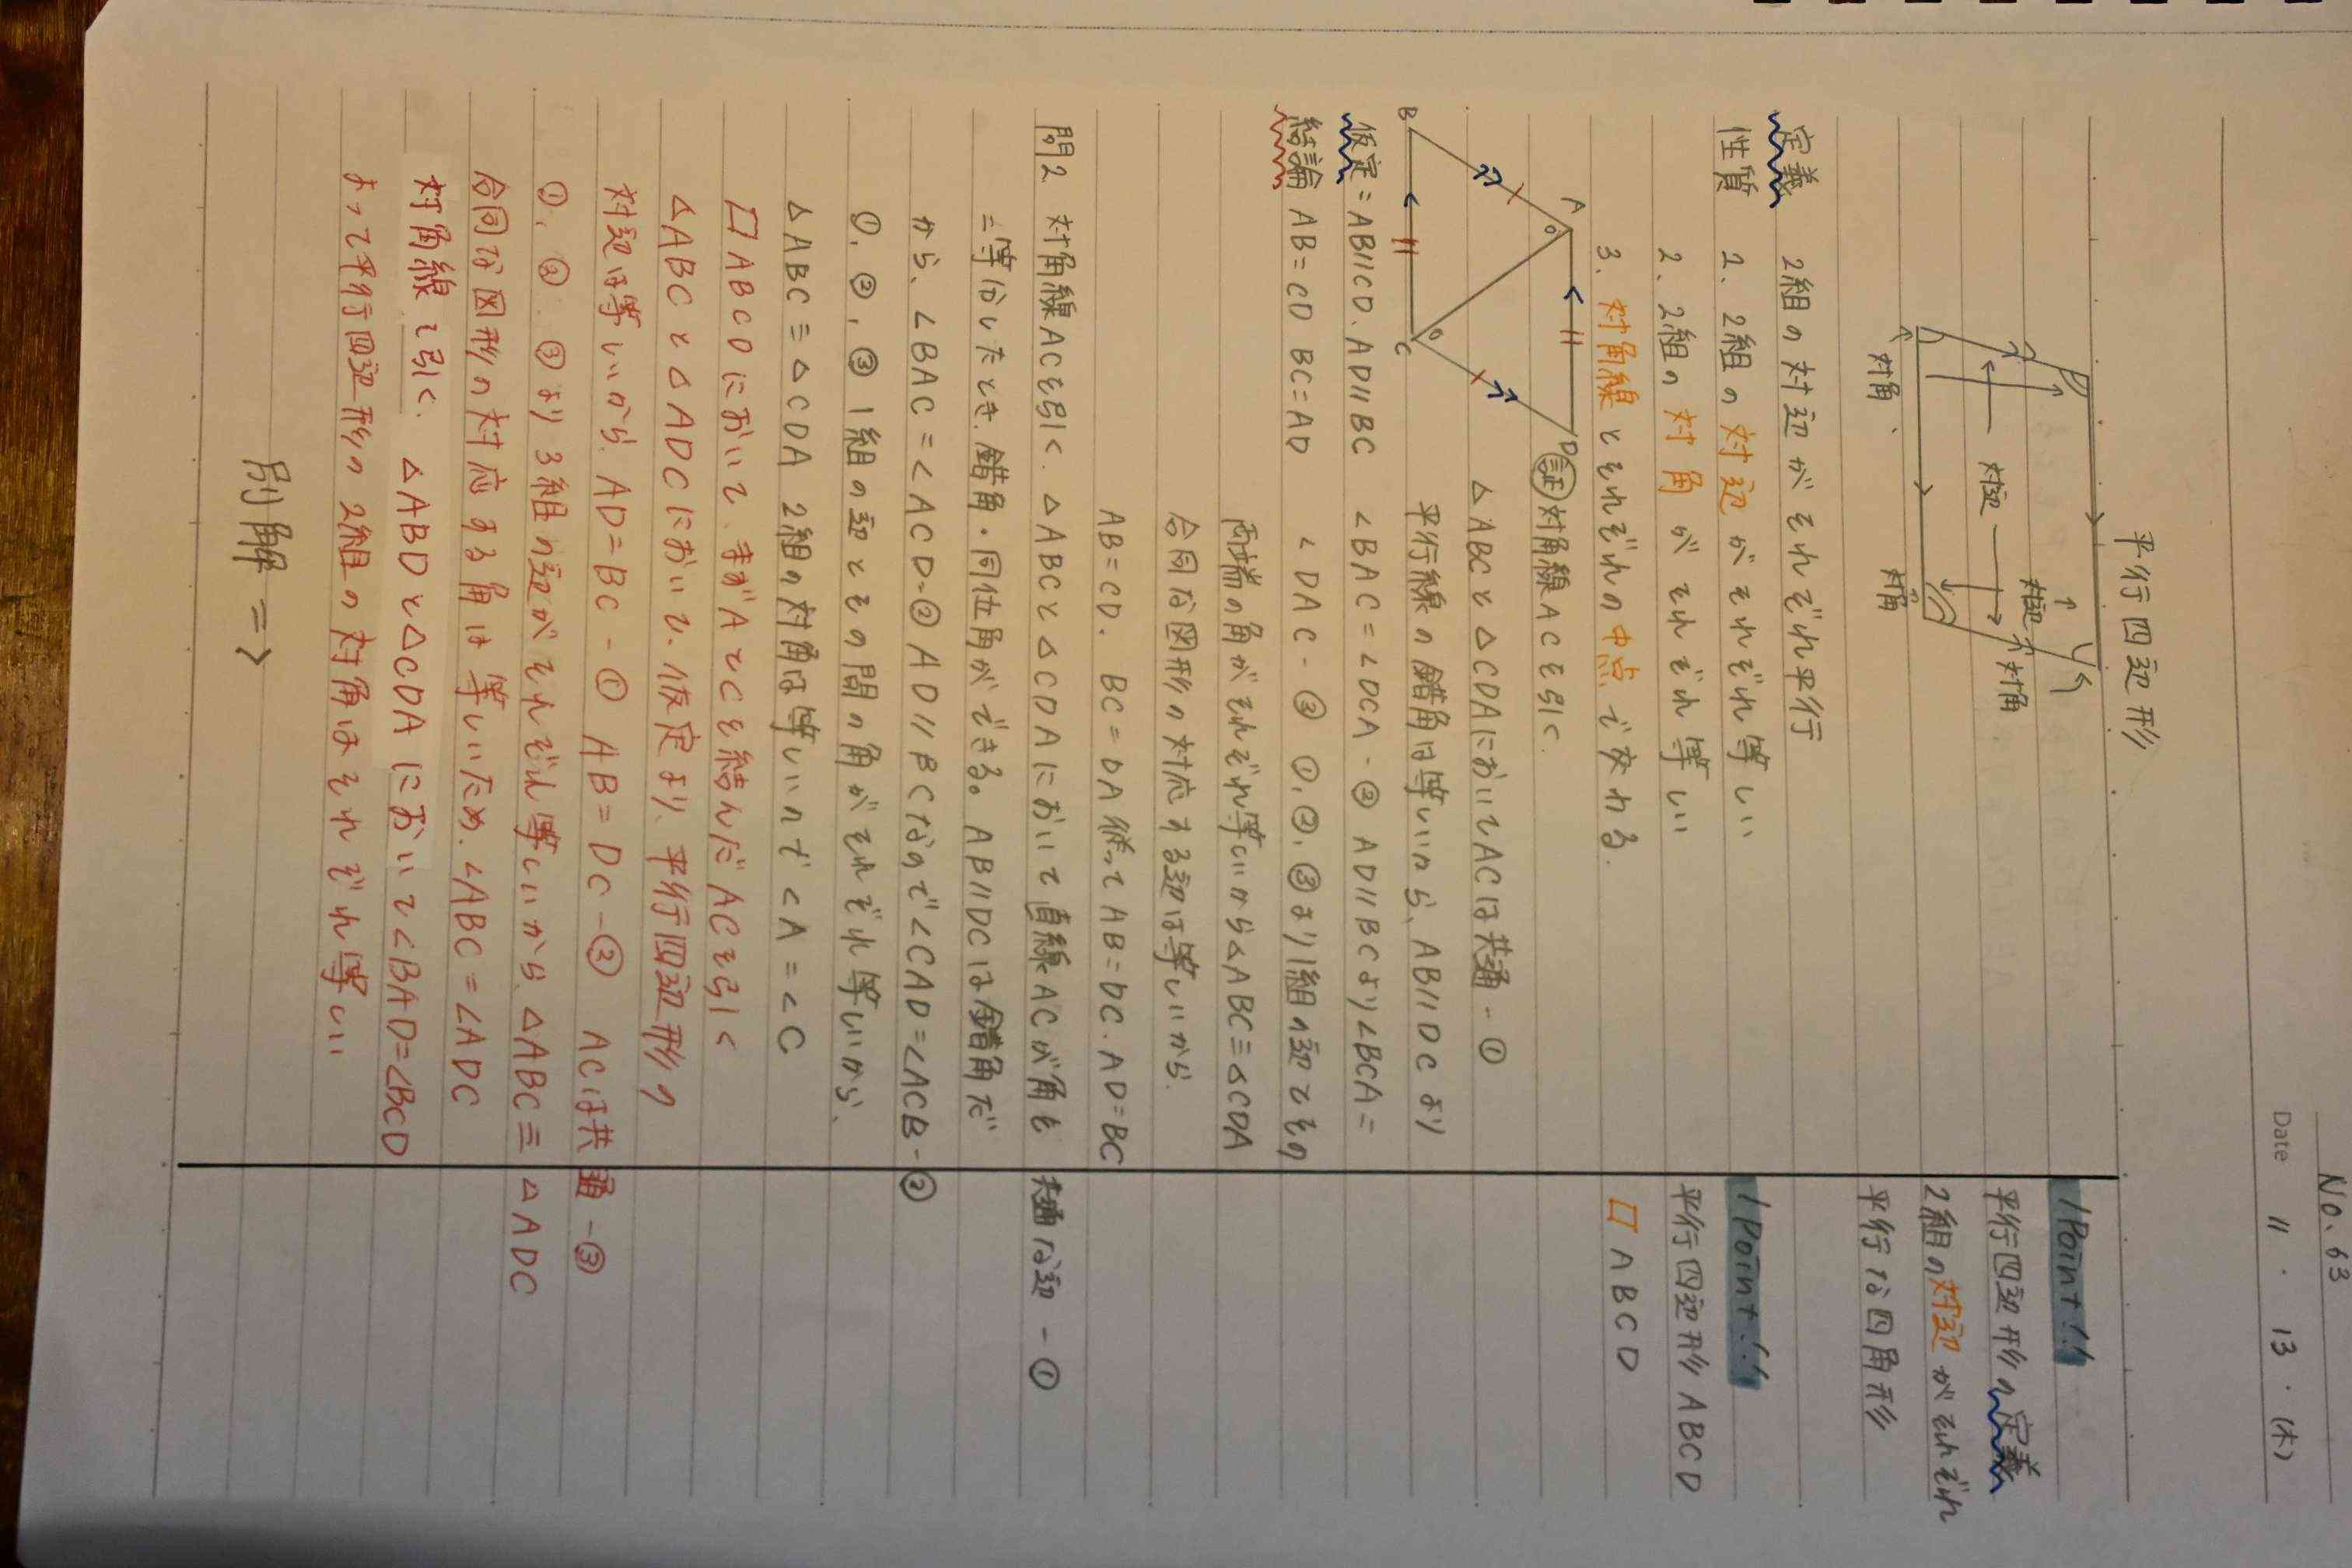 No. 63
Date 11 ・ 13 ・ (木)
平行四辺形
対辺
対角
対辺
対角、
対角
定義 2組の対辺がそれぞれ平行
性質 1、2組の対辺がそれぞれ等しい
2、2組の対角がそれぞれ等しい
3、対角線とそれぞれの中点で交わる.
A
D
B
C
証 対角線ACを引く.
△ABCと△CDAにおいてACは共通-①
平行線の錯角は等しいから、AB//DCより
仮定=AB//CD. AD//BC ∠BAC=∠DCA-② AD//BCより∠BCA=
結論 AB=CD BC=AD ∠DAC-③ ①,②,③より1組の辺とその
両端の角がそれぞれ等しいから△ABC≡△CDA
合同な図形の対応する辺は等しいから.
AB=CD. BC=DA 従ってAB=DC.AD=BC
問2 対角線ACを引く. △ABCと△CDAにおいて直線ACが角を 共通な辺-①
二等分したとき.錯角・同位角ができる。AB//DCは錯角だ
から、∠BAC=∠ACD-② AD//BCなので∠CAD=∠ACB-②
①,②,③ 1組の辺とその間の角がそれぞれ等しいから、
△ABC≡△CDA 2組の対角は等しいので∠A=∠C
□ABCDにおいて、まずAとCを結んだACを引く
△ABCと△ADCにおいて、仮定より、平行四辺形の
対辺は等しいから、AD=BC-① AB=DC-② ACは共通-③
①,②,③より3組の辺がそれぞれ等しいから、△ABC≡△ADC
合同な図形の対応する角は等しいため.∠ABC=∠ADC
対角線を引く、△ABDと△CDAにおいて∠BAD=∠BCD
よって平行四辺形の2組の対角はそれぞれ等しい
別解 ⇒
! Point !!
平行四辺形の定義
2組の対辺がそれぞれ
平行な四角形
! Point !!
平行四辺形ABCD
□ABCD